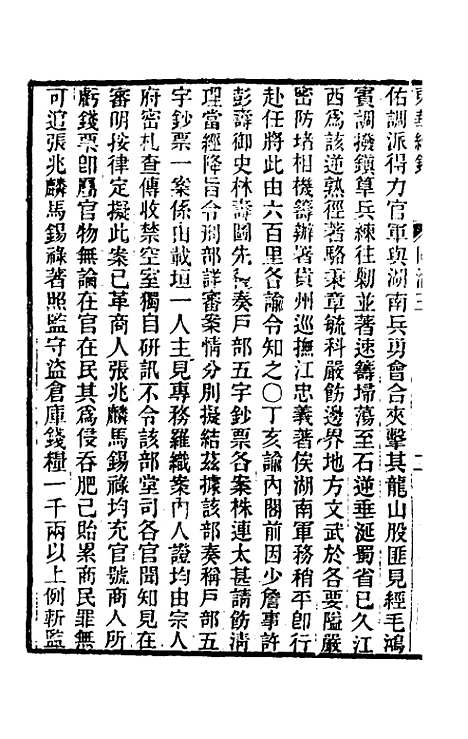 佑調派得力官軍與湖南兵勇會合夾擊其龍山股匪見經毛鴻
賓調撥鎮筸兵練往剿並著速籌埽蕩至石逆垂涎蜀省已久江
西爲該逆熟徑著駱秉章毓科嚴飭邊界地方文武於各要隘嚴
密防堵相機籌辦署貴州巡撫江忠義著俟湖南軍務稍平卽行
赴任將此由六百里各諭令知之○丁亥諭內閣前因少詹事許
彭壽御史林壽圖先後奏戶部五字鈔票各案株連太甚請飭淸
理當經降旨令刑部詳審案情分別擬結茲據該部奏稱戶部五
字鈔票一案係由載垣一人主見專務羅織案內人證均由宗人
府密札查傳收禁空室獨自研訊不令該部堂司各官聞知見在
審明按律定擬此案已革商人張兆麟馬錫祿均充官號商人所
虧錢票卽屬官物無論在官在民其爲侵吞肥己貽累商民罪無
可逭張兆麟馬錫祿著照監守盜倉庫錢糧一千兩以上例斬監